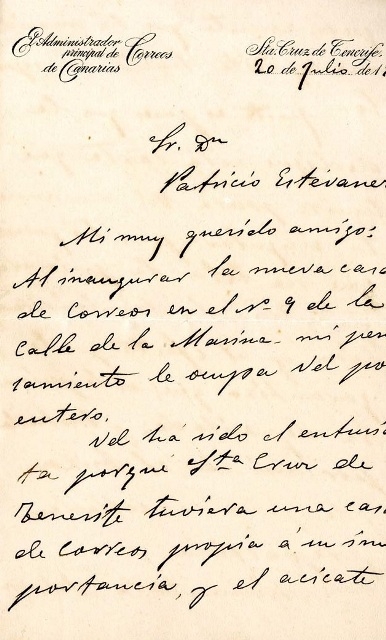 El Administrador
principal de Correos
de Canarias
Sta. Cruz de Tenerife,
20 de Julio de 1
Sr. Dn
Patricio Estévane
Mi muy querido amigo:
Al inaugurar la nueva casa
de Correos en el nº 9 de la
Calle de la Marina - mi pen
samiento le ocupa Vd po
entero.
Vd há sido el entusia
ta porqué Sta Cruz de
Tenerife tuviera una casa
de Correos propia á su im
portancia, y el acicate